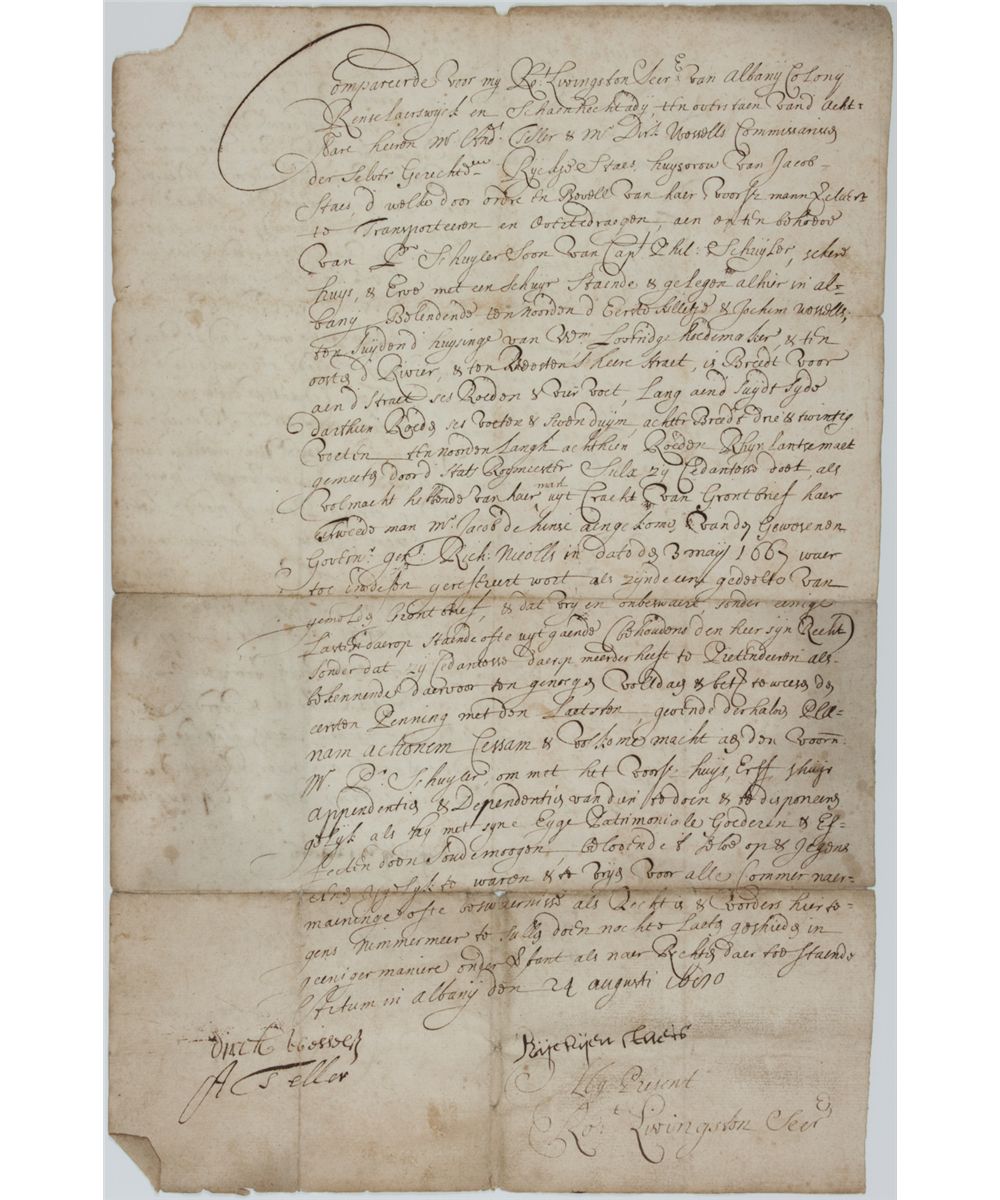 Compareerde voor my Ro:t Livingston Secr: van Albany Colony
Renselaerswyck en Schaenhechtady, ten overstaen vand Acht=
bare heeren Mr. And: Teller & Mr Dirk Wessells Commissarisen
der selver Gerechte: Ryckje Staes, huysvrow van Jacob
Staes, d welke door ordre en Bevell van haer voorse: mann
te Transporteeren en Overtedraegen, aen en ten behoeve
van Pr Schuyler Soon van Capt Phil: Schuyler, seker
huys, & Erve met een schuyr staende & gelegen alhier in al=
bany Belendende ten noorden d Eerste & Jochem Wessells,
ten suyden d huysinge van Wm hoedemaker, & ten
oosten d Rivier, & ten Westen s heere straet, is Breedt voor
aen d straet ses Roeden & vier voet, Lang aend suydt syde
darthien Roeds ses voeten & seven duym, achter Breedt drie & twintig
voeten, ten noorden Langh achthien Roeden Rhyn lantse maet
gemeeten door d Stats Roymeester Sulx zy Cedantesse doet, als
volmacht hebbende van haer man uyt Cracht van Grontbrief haer
Tweede man Mr. Jacob de hinse aengekome, vanden Gewesenen
Govern:r gen:l Rich: Nicolls in dato den 3 mayj 1667 waer
toe gerefereert wort als zynde een gedeelte van
gemelde Grontbrief, & dat vry en onbeswaert, sonder eenige
Lasten daerop staende ofte uyt gaende (behoudens den heer syn Recht)
sonder dat zy Cedantesse daerop meerder heeft te Pretenderen als
bekennende daervoor ten genoege voldaen & bet: te wesen den
eersten Penning met den Laetsten gevende derhalve Ple=
nam actionem Cessam & volkome macht aen den voorn:
Mr. Pr Schuyler, om met het voorsz: huys, Erff, schuyr
appendentien & Dependentien van dien te doen & te disponeeren
gelyk als hy met syne Eyge Patrimoniale Goederen & Ef=
fecten doen soude moogen beloovende t selve op & Jegens
een ygelyk te waren & te vryen voor alle Commer naer=
maeninge ofte beswaernisse als Recht is & voorders hier te=
gens nimmermeer te sullen doen nochte Laeten geschieden in
geeniger maniere onder als naer Rechten daer toe staende
Actum in Albany den 24 augusti 1680
Dirck Wessells
A Teller
Rijckijen staets
My Present
Ro:t Livingston Secr